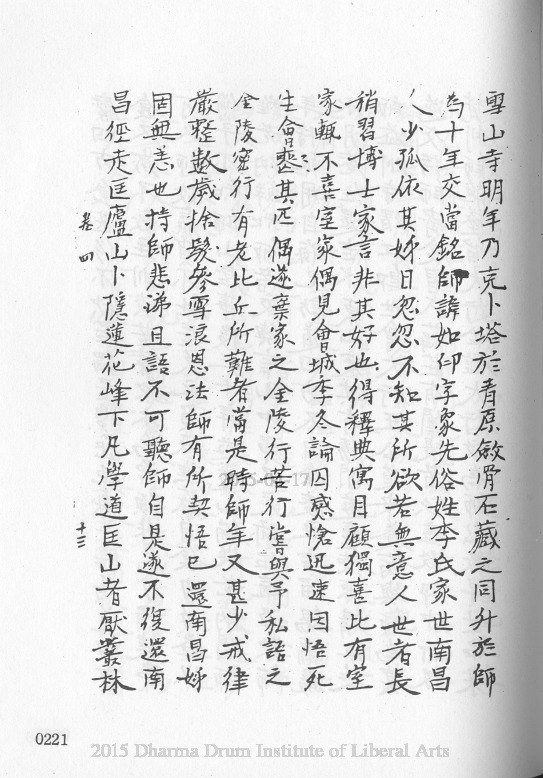 雪山寺明年乃克卜塔於青原斂骨石藏之同升於師
為十年交當銘師諱如仰字象先俗姓李氏家世南昌
人少孤依其姊日忽忽不知其所欲若無意人世者長
稍習博士家言非其好也得釋典寓目顧獨喜比有室
家輒不喜室家偶見會城季冬論囚感愴迅速因悟死
生會喪其匹偶遂棄家之金陵行苦行嘗與予私語之
金陵密行有老比丘所難者當是時師年又甚少戒律
嚴整數歲捨髮參雪浪恩法師有所契悟已還南昌姊
固無恙也持師悲涕且語不可聽師自是遂不復還南
昌徑走匡廬山卜隱蓮花峰下凡學道匡山者厭叢林
卷四
十三
0221
2015 Dharma Drum Institute of Liberal Arts